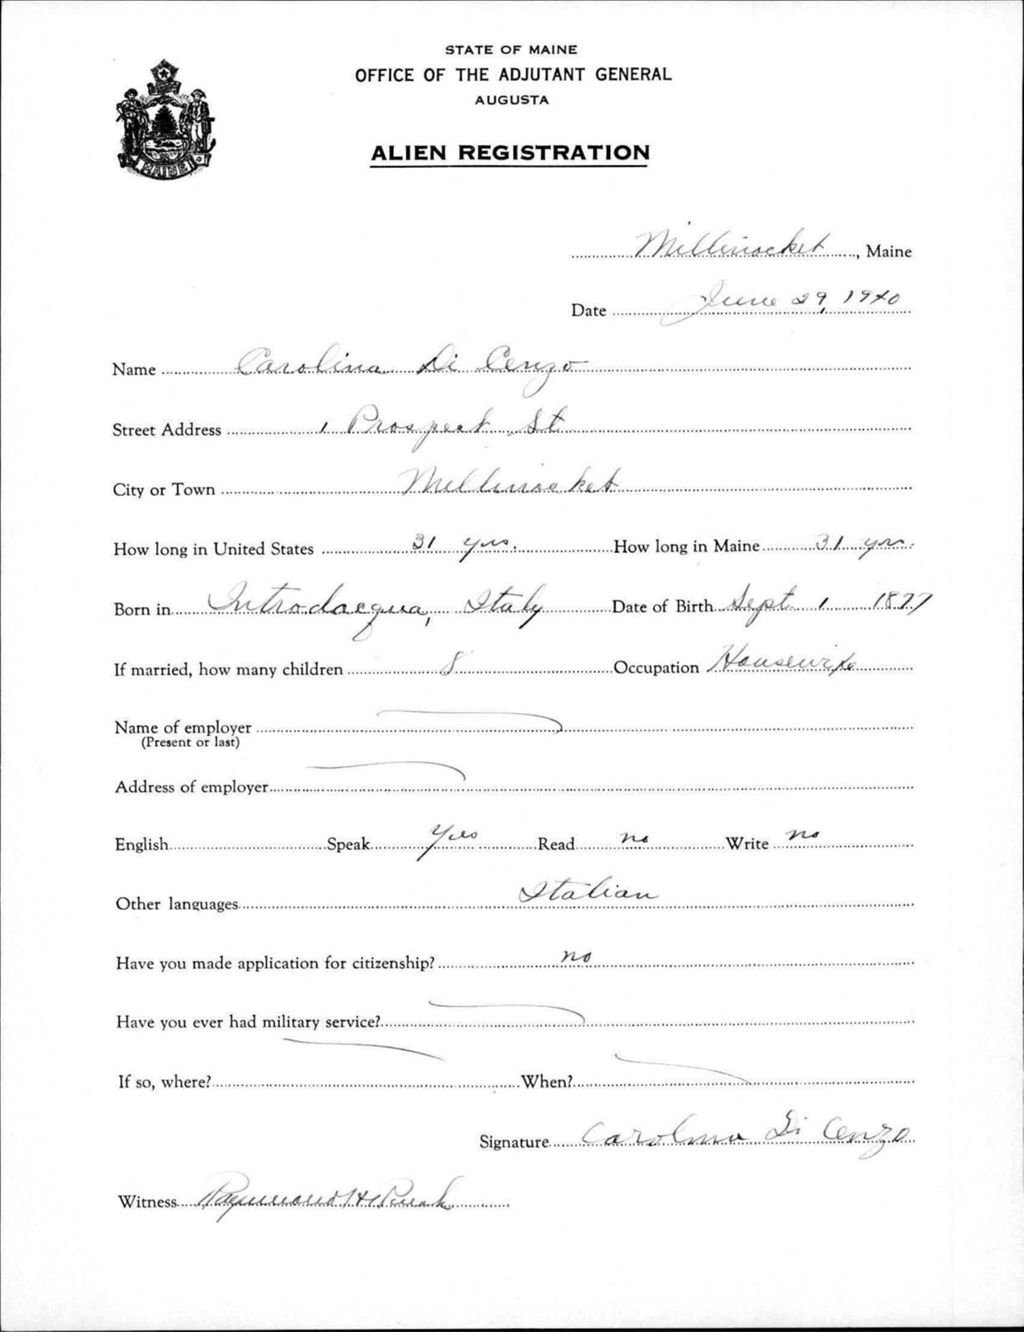 STATE OF MAINE
OFFICE OF THE ADJUTANT GENERAL
AUGUSTA
ALIEN REGISTRATION
MAINE
Millinocket, Maine
Date June 29, 1940
Name Carolina Di Cenzo
Street Address 1 Prospect St
City or Town Millinocket
How long in United States 31 yrs. How long in Maine 31 yrs.
Born in Introdacqua, Italy Date of Birth Sept 1 1877
If married, how many children 8 Occupation Housewife
Name of employer
(Present or last)
Address of employer
English Speak Yes Read no Write no
Other languages Italian
Have you made application for citizenship? no
Have you ever had military service?
If so, where? When?
Signature Carolina Di Cenzo
Witness Raymond H